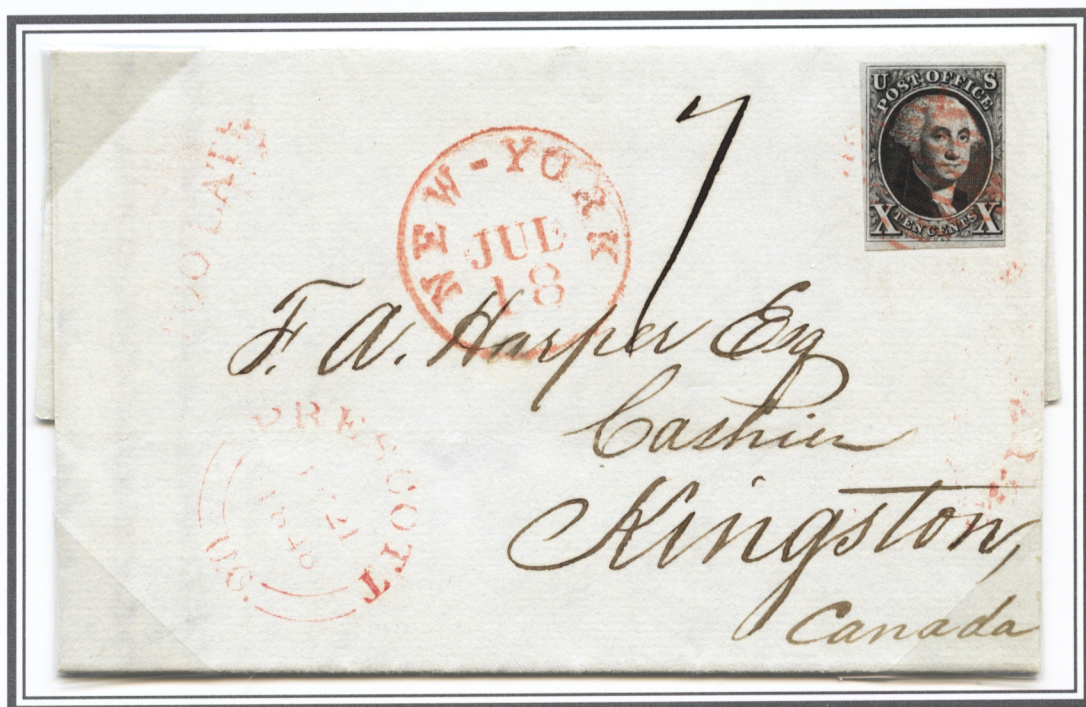 U S
POST OFFICE
X TEN CENTS X
TOO LATE
NEW-YORK
JUL
18
7
F. A. Harper Esq
Cashier
Kingston,
Canada
PRESCOTT
21
1848
U.C.